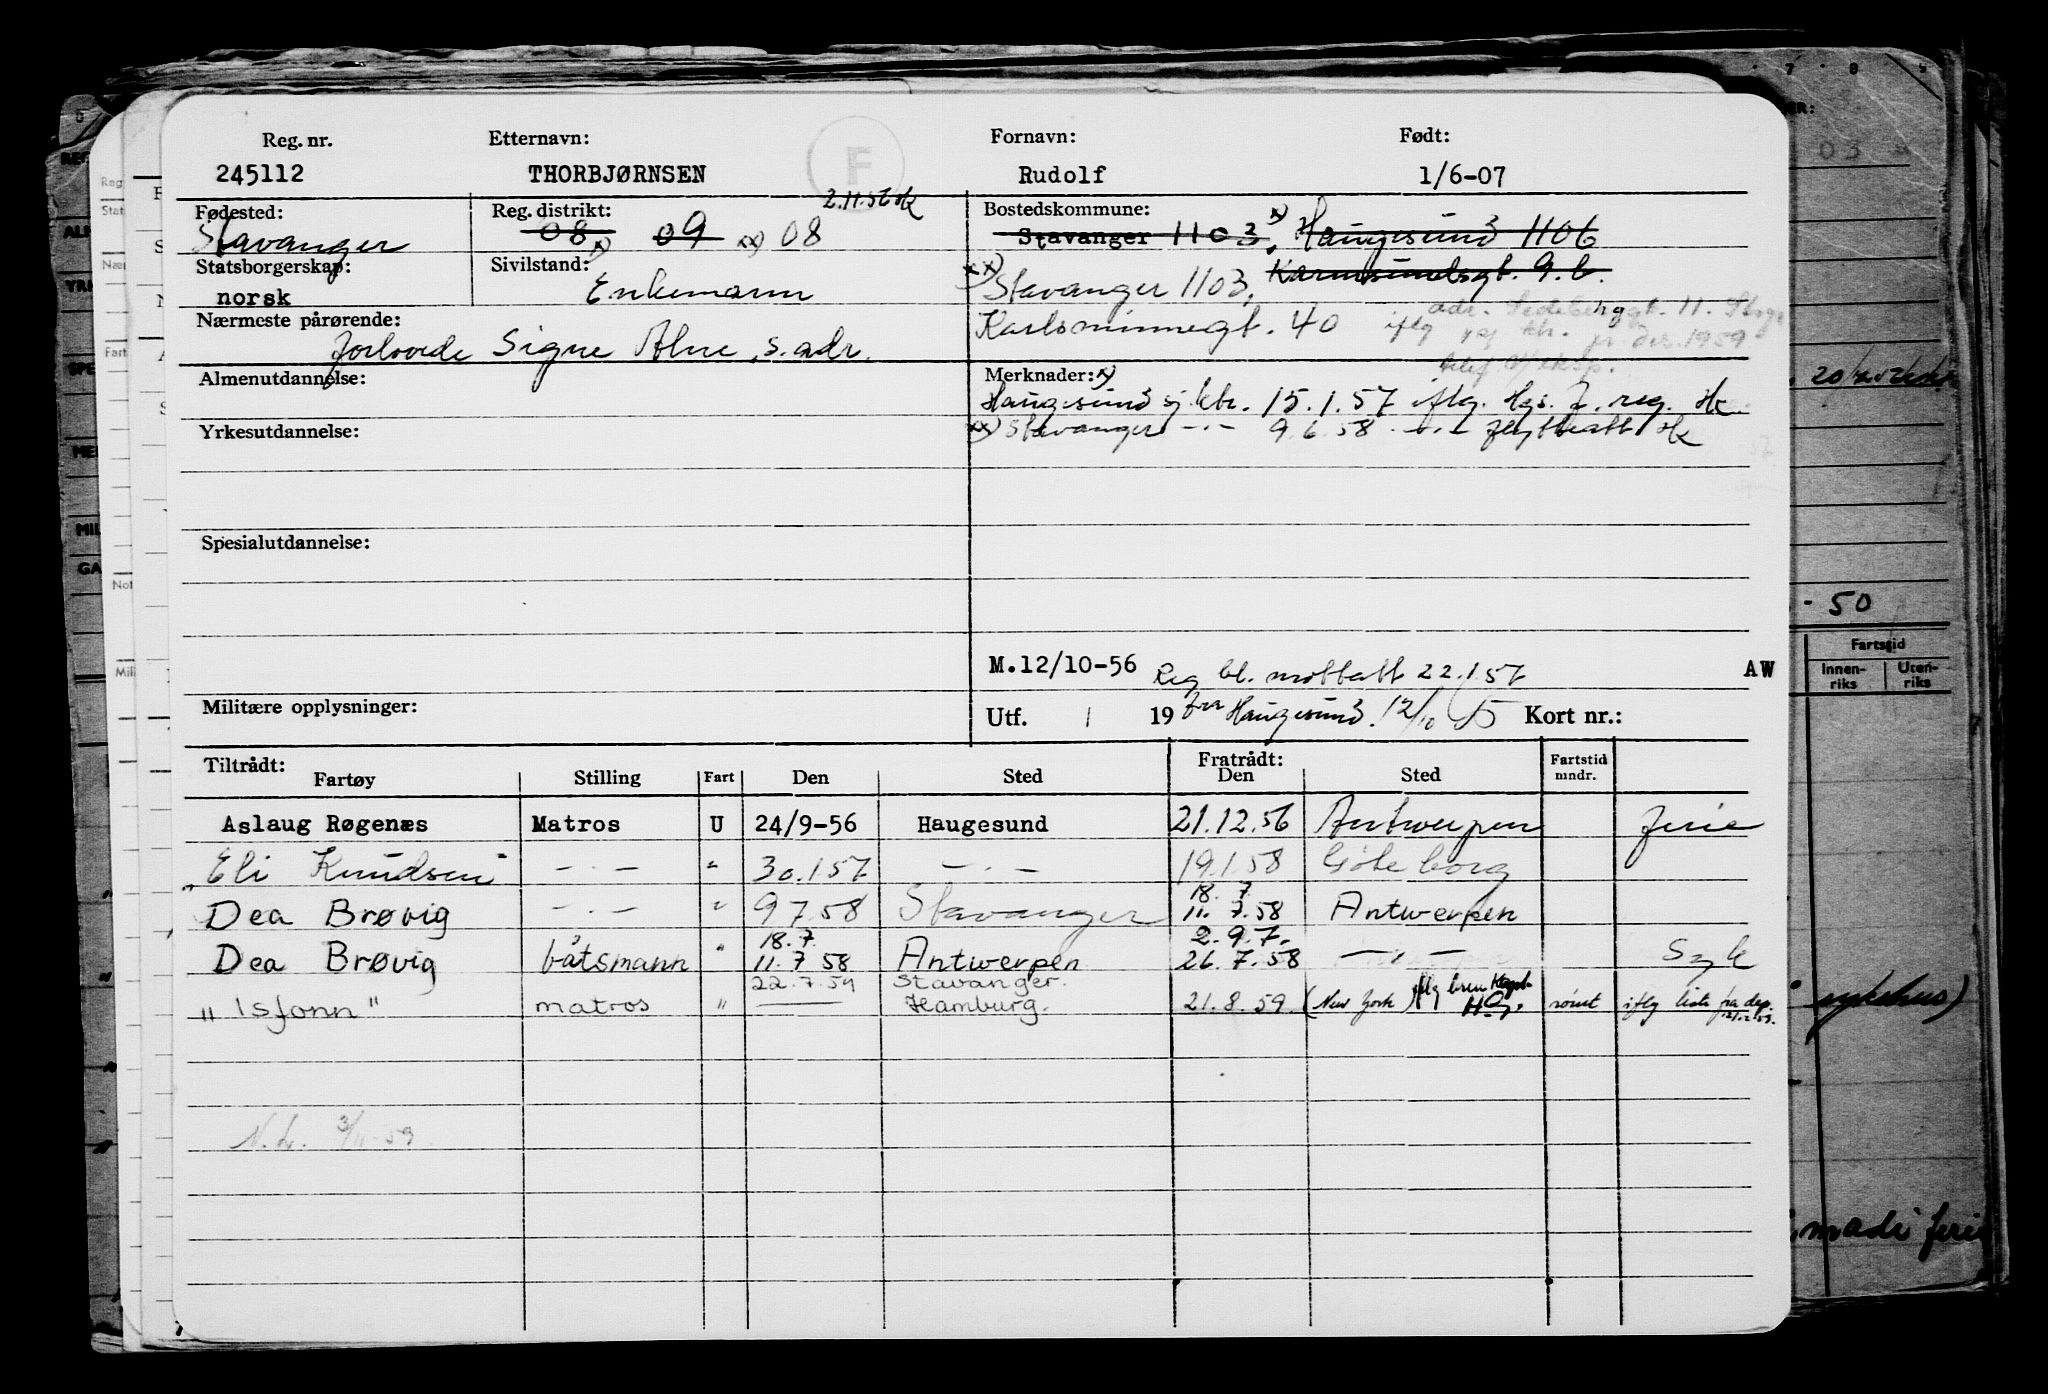 Reg. nr. Etternavn: F Fornavn: Født:
245112 THORBJØRNSEN Rudolf 1/6-07
Fødested: Reg. distrikt: 2.11.56 Hk Bostedskommune:
Stavanger 08 x) 09 xx) 08 Stavanger 1103, x) Haugesund 1106
Statsborgerskap: Sivilstand: Karmsundsgt. 9.b.
norsk Enkemann xx) Stavanger 1103,
Nærmeste pårørende: Karlsminnegt. 40
forlovede Signe Alne, s. adr.
iflg
adr. 11.
1959
Almenutdannelse: Merknader: x)
Haugesund sj.ktr. 15.1.57 iflg. reg. Hk
Yrkesutdannelse: xx) Stavanger -"- 9.6.58 -"- flyttealt Hk
Spesialutdannelse:
M.12/10-56 Reg bl. mottatt 22.1.57 AW
Militære opplysninger: Utf. / 19 fra Haugesund. 12/10 Kort nr.:
Tiltrådt: Fratrådt:
Fartøy Stilling Fart Den Sted Den Sted Fartstid mndr.
Aslaug Røgenæs Matros U 24/9-56 Haugesund 21.12.56 Antwerpen ferie
Eli Knudsen -"- " 30.1.57 -"- 19.1.58 Göteborg
18.7
Dea Brøvig -"- " 9.7.58 Stavanger 11.7.58 Antwerpen
18.7. 2.9.7.
Dea Brøvig båtsmann " 11.7.58 Antwerpen 26.7.58 -"- Syk
22.7.59 Stavanger.
"Isfonn" matros " Hamburg. 21.8.59. (New York) iflg brev rømt iflg liste fra dep.
N.L. 3/11-59
7 8 9
03
20/
- 50
Fartstid
Innen-riks Uten-riks
sykehus)
ferie